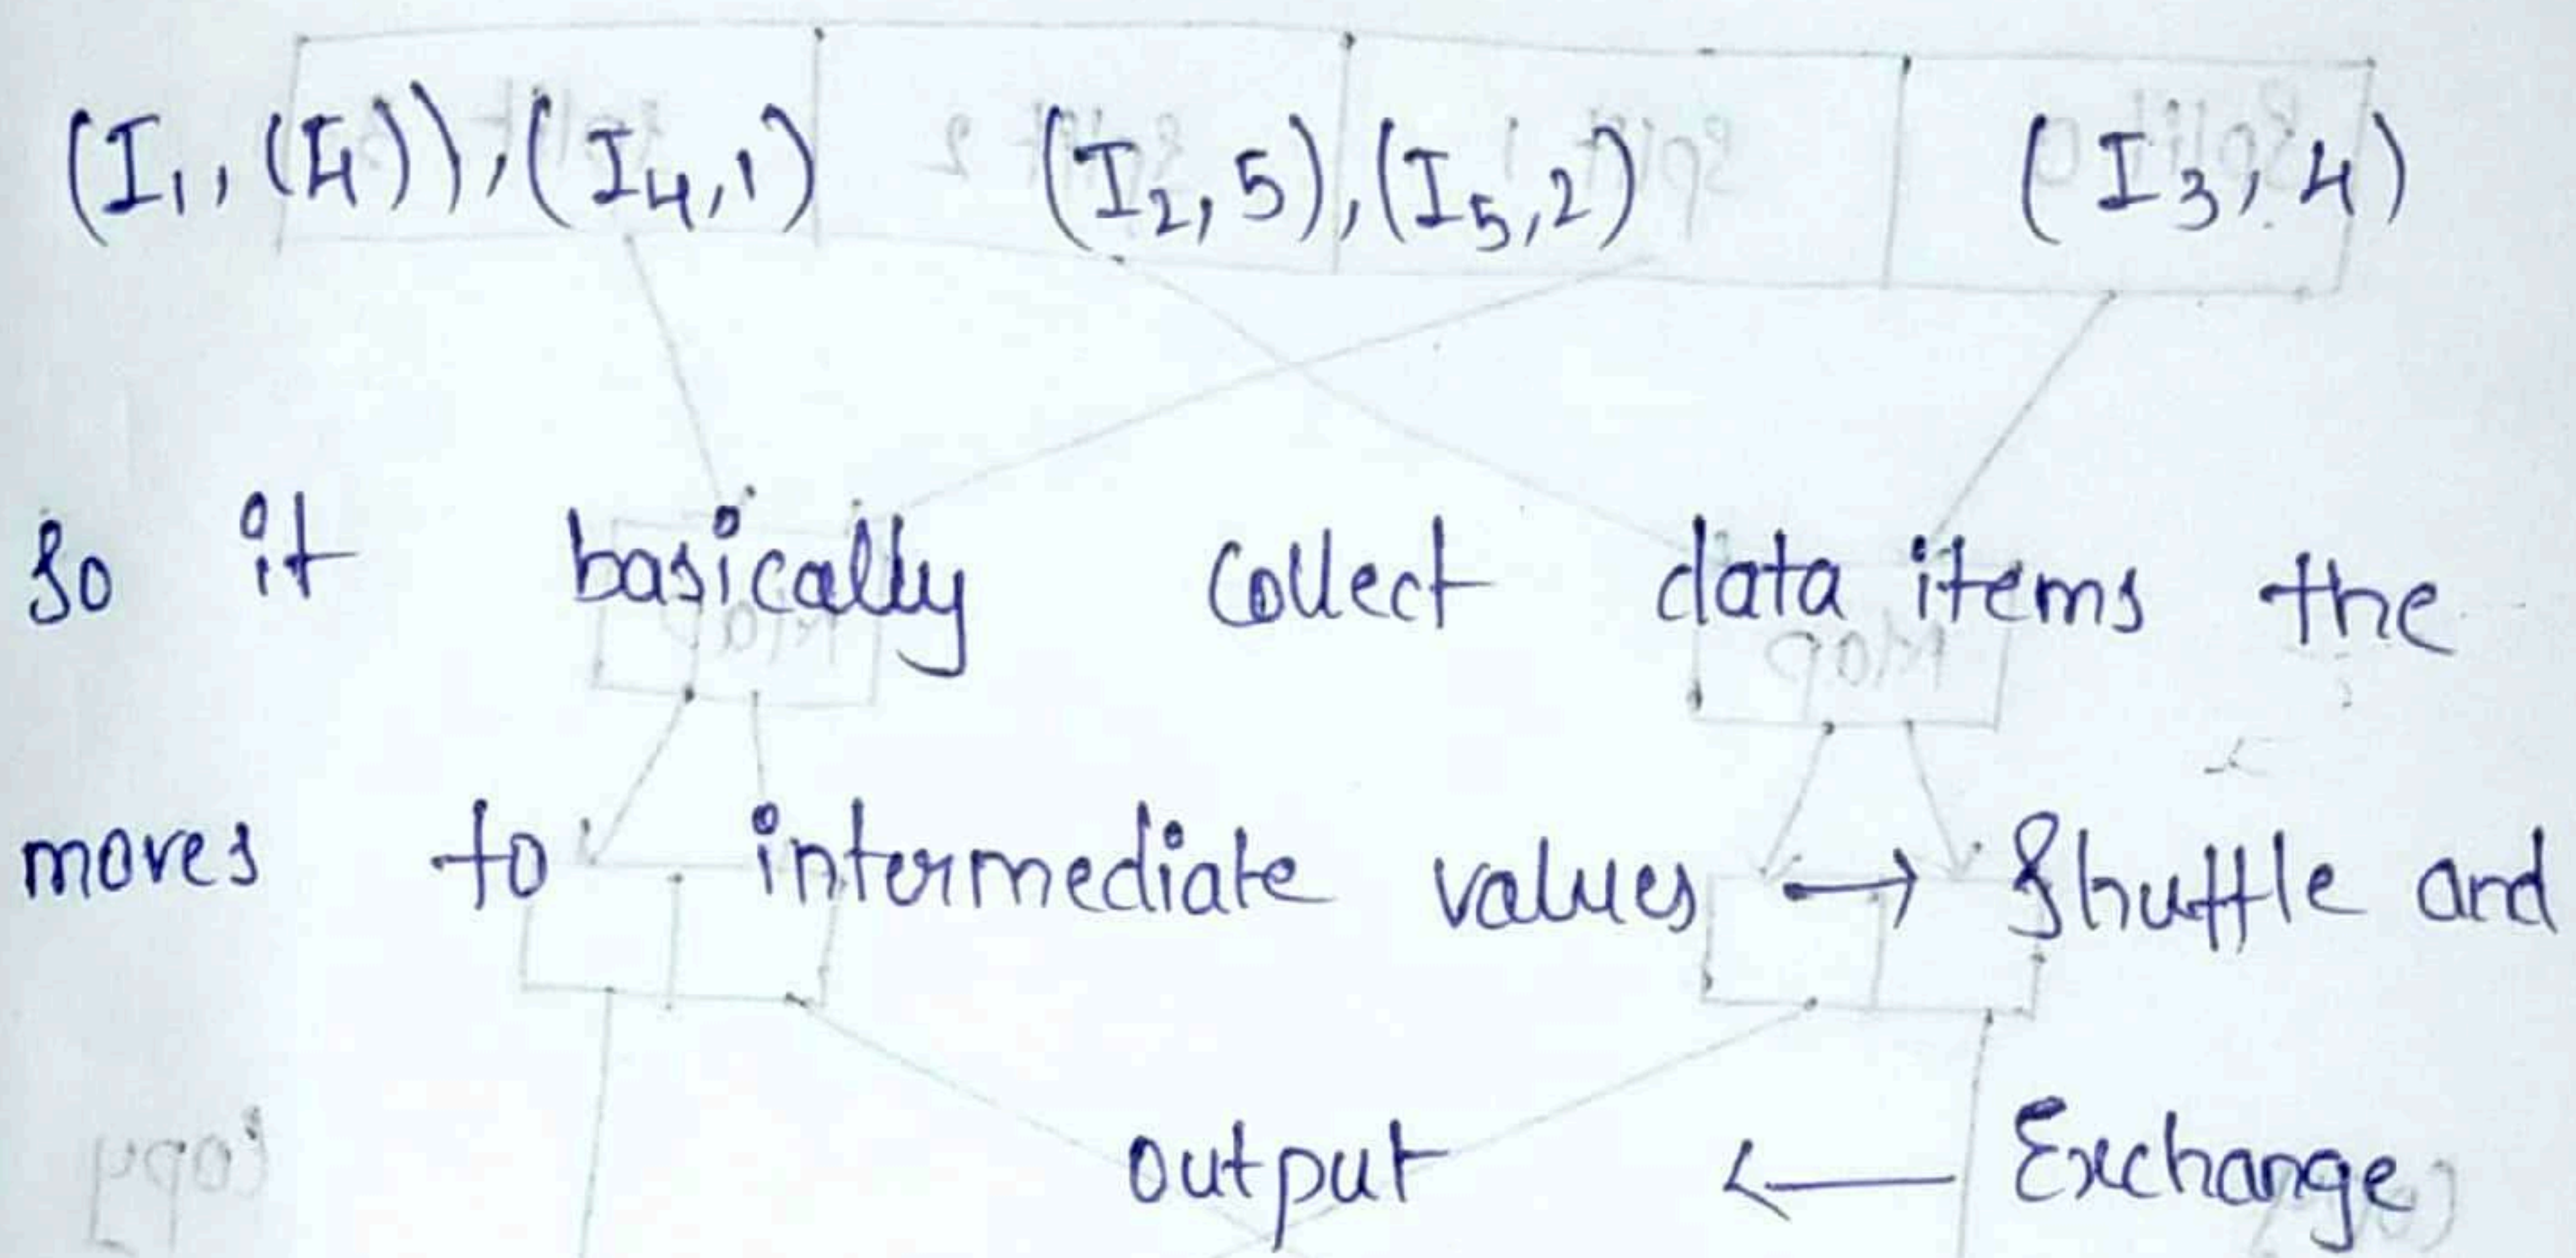 (I₁, (4)), (I₄, 1) (I₂, 5), (I₅, 2) (I₃, 4)
So it basically collect data items the
moves to intermediate values → Shuffle and
output ← Exchange